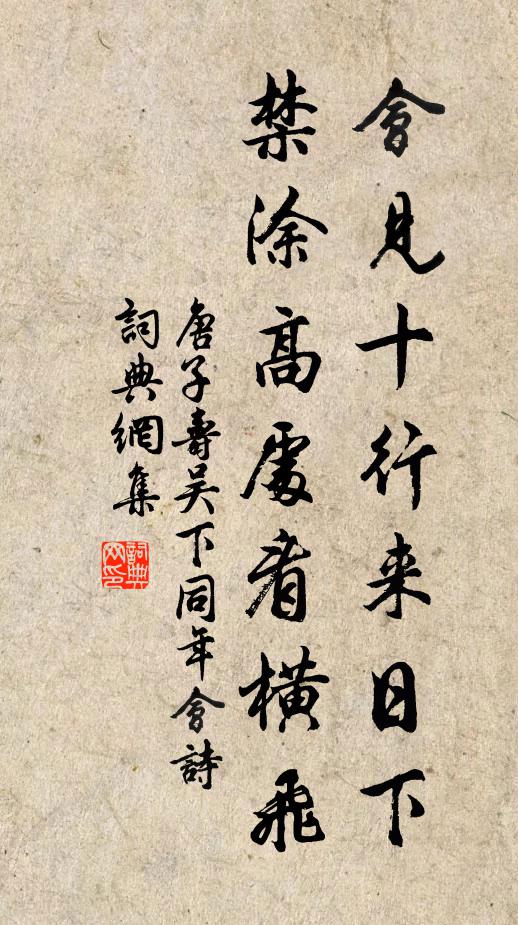 會見十行来日下
禁涂高處看橫飛
唐子壽吴下同年會詩
詞典網集
詞典
网印